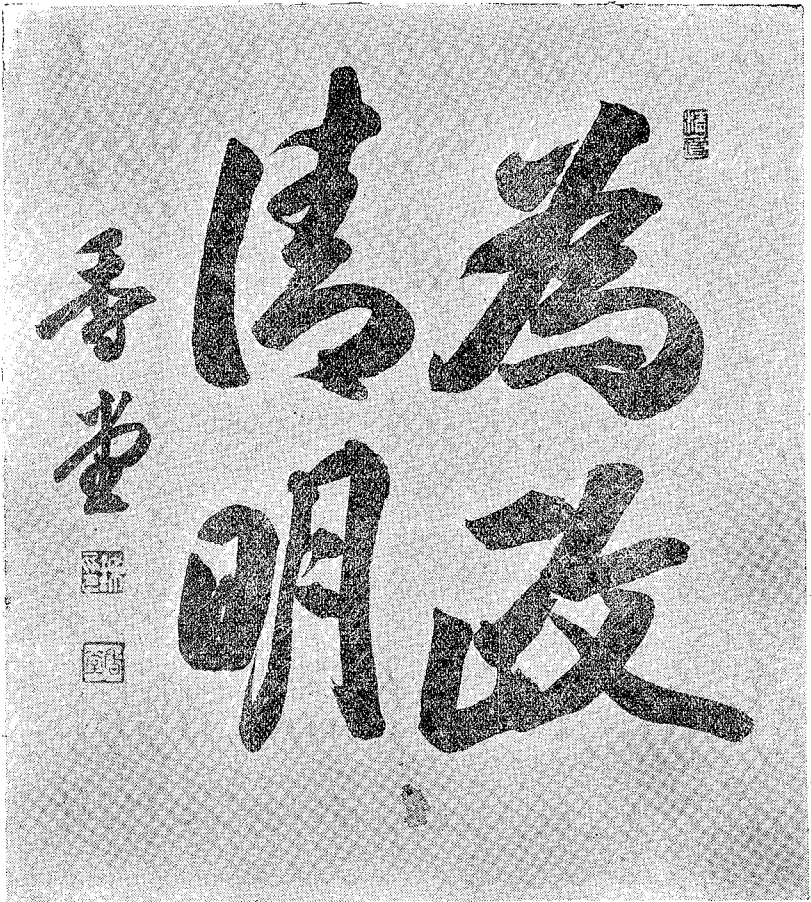 為政
清明
寿堂